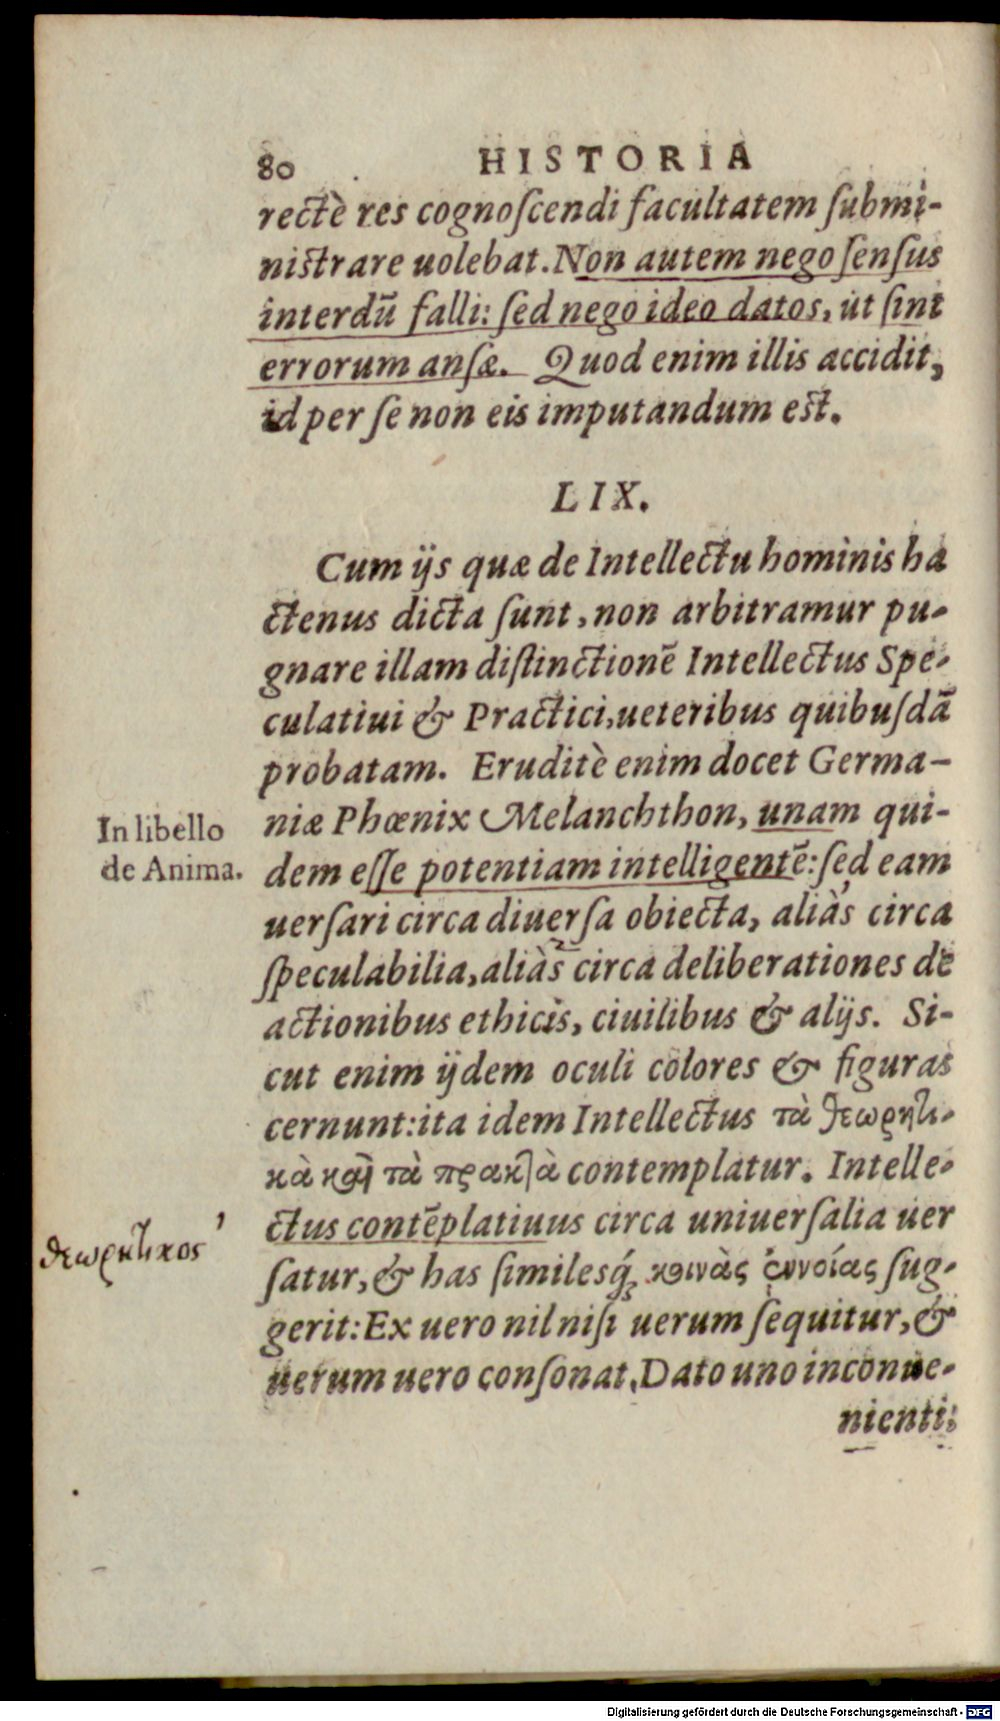 80 HISTORIA
rectè res cognoſcendi facultatem ſubmi-
niſtrare uolebat. Non autem nego ſenſus
interdū falli: ſed nego ideo datos, ut ſint
errorum anſæ. Quod enim illis accidit,
id per ſe non eis imputandum eſt.
LIX.
Cum ijs quæ de Intellectu hominis ha
ctenus dicta ſunt, non arbitramur pu-
gnare illam diſtinctionē Intellectus Spe-
culatiui & Practici, ueteribus quibuſdā
probatam. Eruditè enim docet Germa-
niæ Phœnix Melanchthon, unam qui-
In libello
de Anima.
dem eſſe potentiam intelligentē: ſed eam
uerſari circa diuerſa obiecta, aliàs circa
ſpeculabilia, aliàs circa deliberationes de
actionibus ethicis, ciuilibus & alijs. Si-
cut enim ijdem oculi colores & figuras
cernunt: ita idem Intellectus τὰ θεωρητι-
κὰ καὶ τὰ πρακτὰ contemplatur. Intelle-
ctus contēplatiuus circa uniuerſalia uer
θεωρητικος
ſatur, & has ſimilesq́ꝫ κοινὰς ἐννοίας ſug-
gerit: Ex uero nil niſi uerum ſequitur, &
uerum uero conſonat, Dato uno inconue-
nienti:
Digitalisierung gefördert durch die Deutsche Forschungsgemeinschaft - DFG